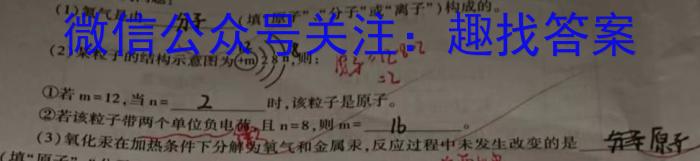 (1)氧气是由 分子 (填“原子”“分子”或“离子”)构成的。
微信公众号关注：趣找答案
(2)某粒子的结构示意图为 +m 2 8 n ,则:
=2
①若 m=12,当 n= 2 时,该粒子是原子。
②若该粒子带两个单位负电荷,且 n=8,则 m= 16 。
(3)氧化汞在加热条件下分解为氧气和金属汞,反应过程中未发生改变的是 原子